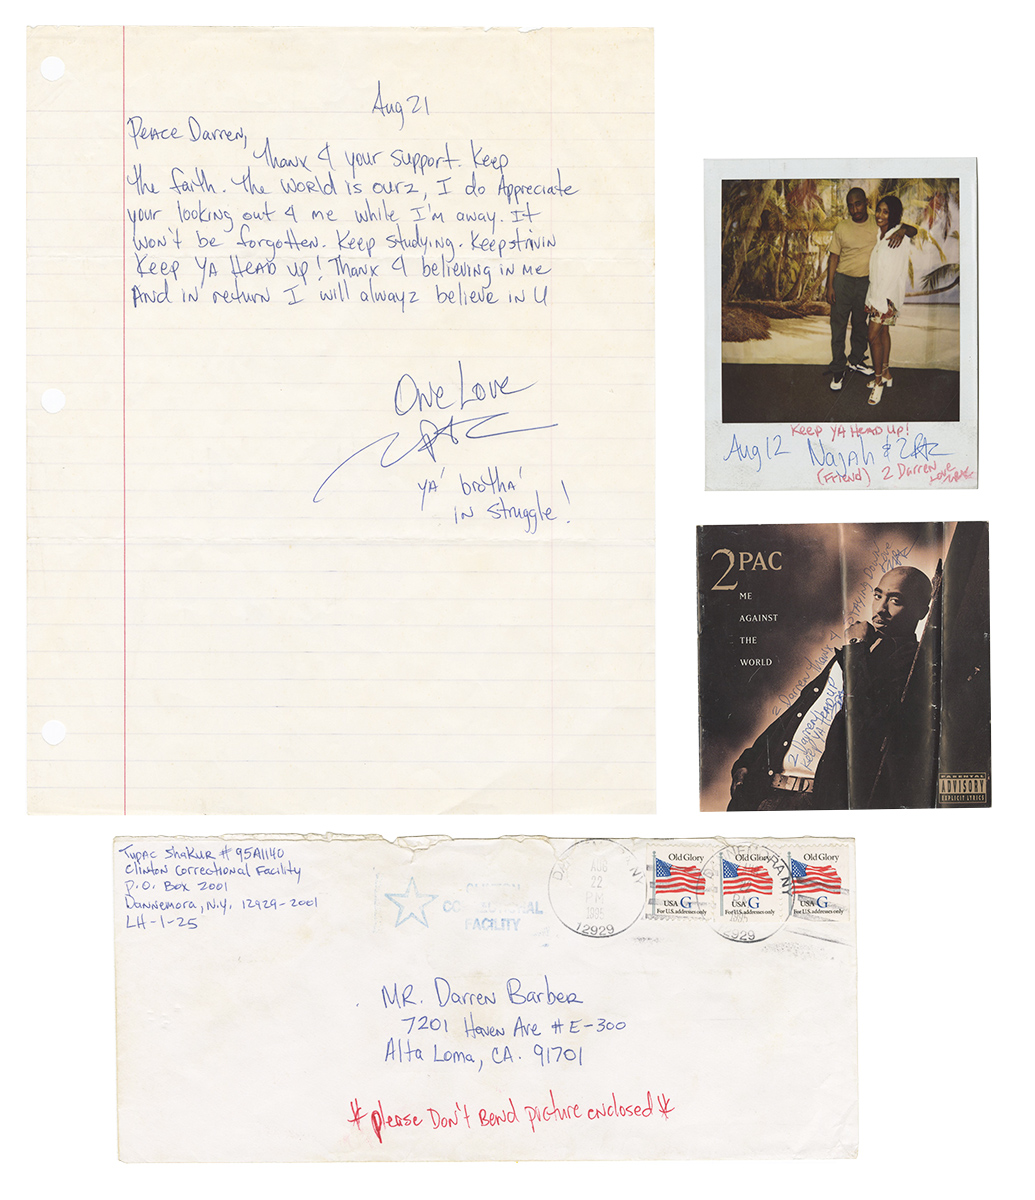 Aug 21
Peace Darren,
Thanx 4 your support. Keep
the faith. The world is ourz, I do Appreciate
your looking out 4 me while I'm away. It
won't be forgotten. Keep studying. Keep strivin
Keep YA Head up! Thanx 4 believing in me
And in return I will alwayz believe in U
One Love
2PAC
YA' brotha'
IN Struggle!
Keep YA Head Up!
Aug 12 Najah & 2PAC
(Friend) 2 Darren
Love
2PAC
ME
AGAINST
THE
WORLD
2 Darren Thanx 4 STAYING DOWN
2 Darren
Keep YA HEAD UP
PARENTAL
ADVISORY
EXPLICIT LYRICS
Tupac Shakur # 95A1140
Clinton Correctional Facility
P.O. Box 2001
Dannemora, N.Y. 12929-2001
LH-1-25
CLINTON
CORRECTIONAL
FACILITY
DANNEMORA NY
AUG
22
PM
1995
12929
Old Glory
USA G
For U.S. addresses only
Old Glory
USA G
For U.S. addresses only
Old Glory
USA G
For U.S. addresses only
MR. Darren Barber
7201 Haven Ave # E-300
Alta Loma, CA. 91701
*please Don't Bend picture enclosed*